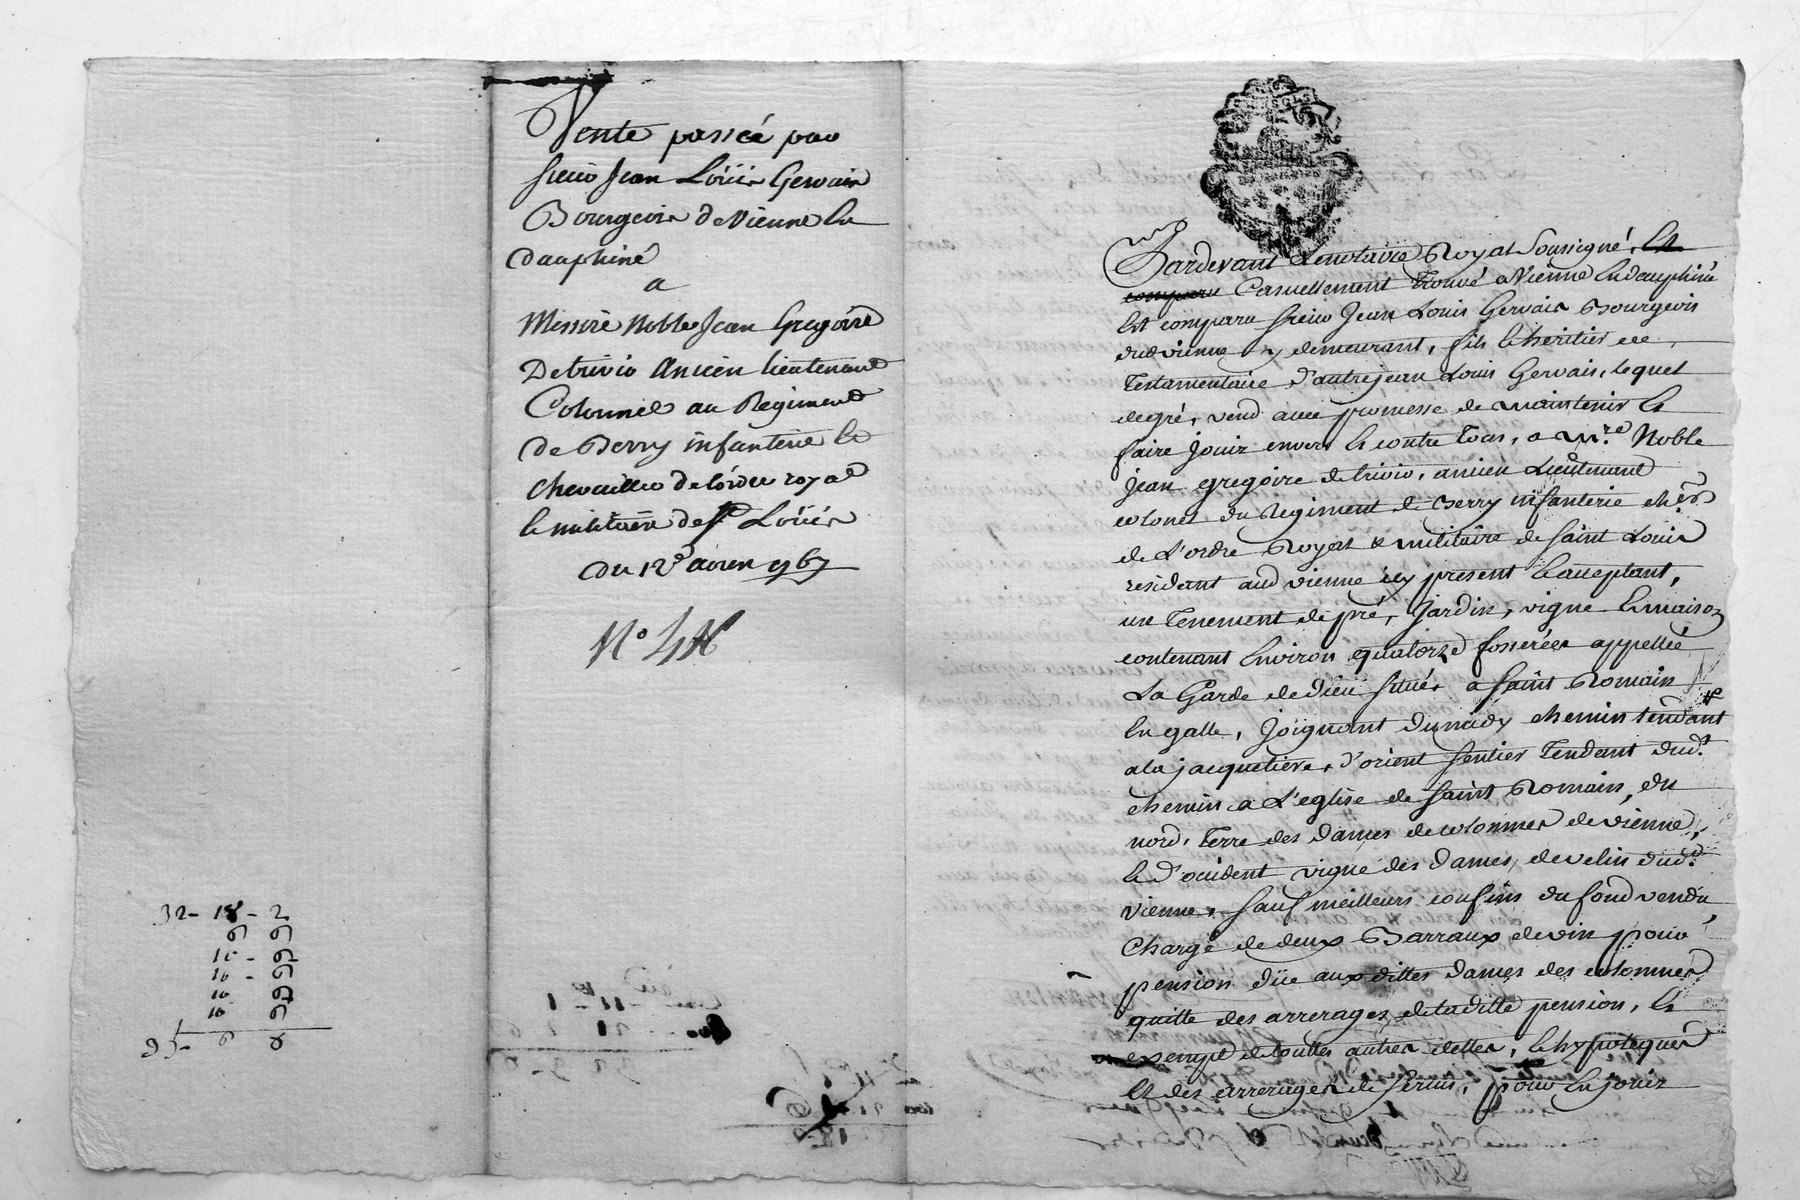 Vente passée par
sieur Jean Loüis Gervais
Bourgeois de Vienne En
dauphiné
a
Messire Noble Jean Gregoire
Detrivio Ancien lieutenant
Colonnel au Regiment
de Berry infanterie Et
chevaillier de l'ordre royal
Et militaire de St. Loüis
du 12e avril 1767
N° 4
32 - 18 - 2
Pardevant Le notaire Royal Soussigné, Et
comparu Casuellement Trouvé a Vienne En dauphiné
Est comparu sieur Jean Louis Gervais Bourgeois
dud vienne y demeurant, fils Et héritier
Testamentaire d'autre jean Louis Gervais, lequel
de gré, vend avec promesse de maintenir Et
faire Jouir envers Et contre Tous, a Mre. Noble
Jean gregoire detrivio, ancien Lieutenant
colonel du Regiment de Berry infanterie cher.
de L'ordre Royal & militaire de Saint Louis
residant aud vienne icy present Et acceptant,
un Tenement de pré, Jardin, vigne Et maison
contenant Environ quatorze fosserées appellé
La Garde de Dieu situés a Saint Romain
En galle, Joignant du midy chemin tendant
a la jacquetiere, d'orient sentier Tendant dudt.
chemin a L'eglise de saint Romain, du
nord, Terre des Dames de colonnes de vienne,
Et d'occident vigne des Dames de velin dudt.
vienne, sauf meilleurs confins du fond vendu
Chargé de deux Barraux de vin pour
pension düe aux dittes dames des colonnes
quitte des arrerages de laditte pension, Et
exempt de touttes autres dettes, Et hypoteques
Et des arrerages de servis, pour En jouir